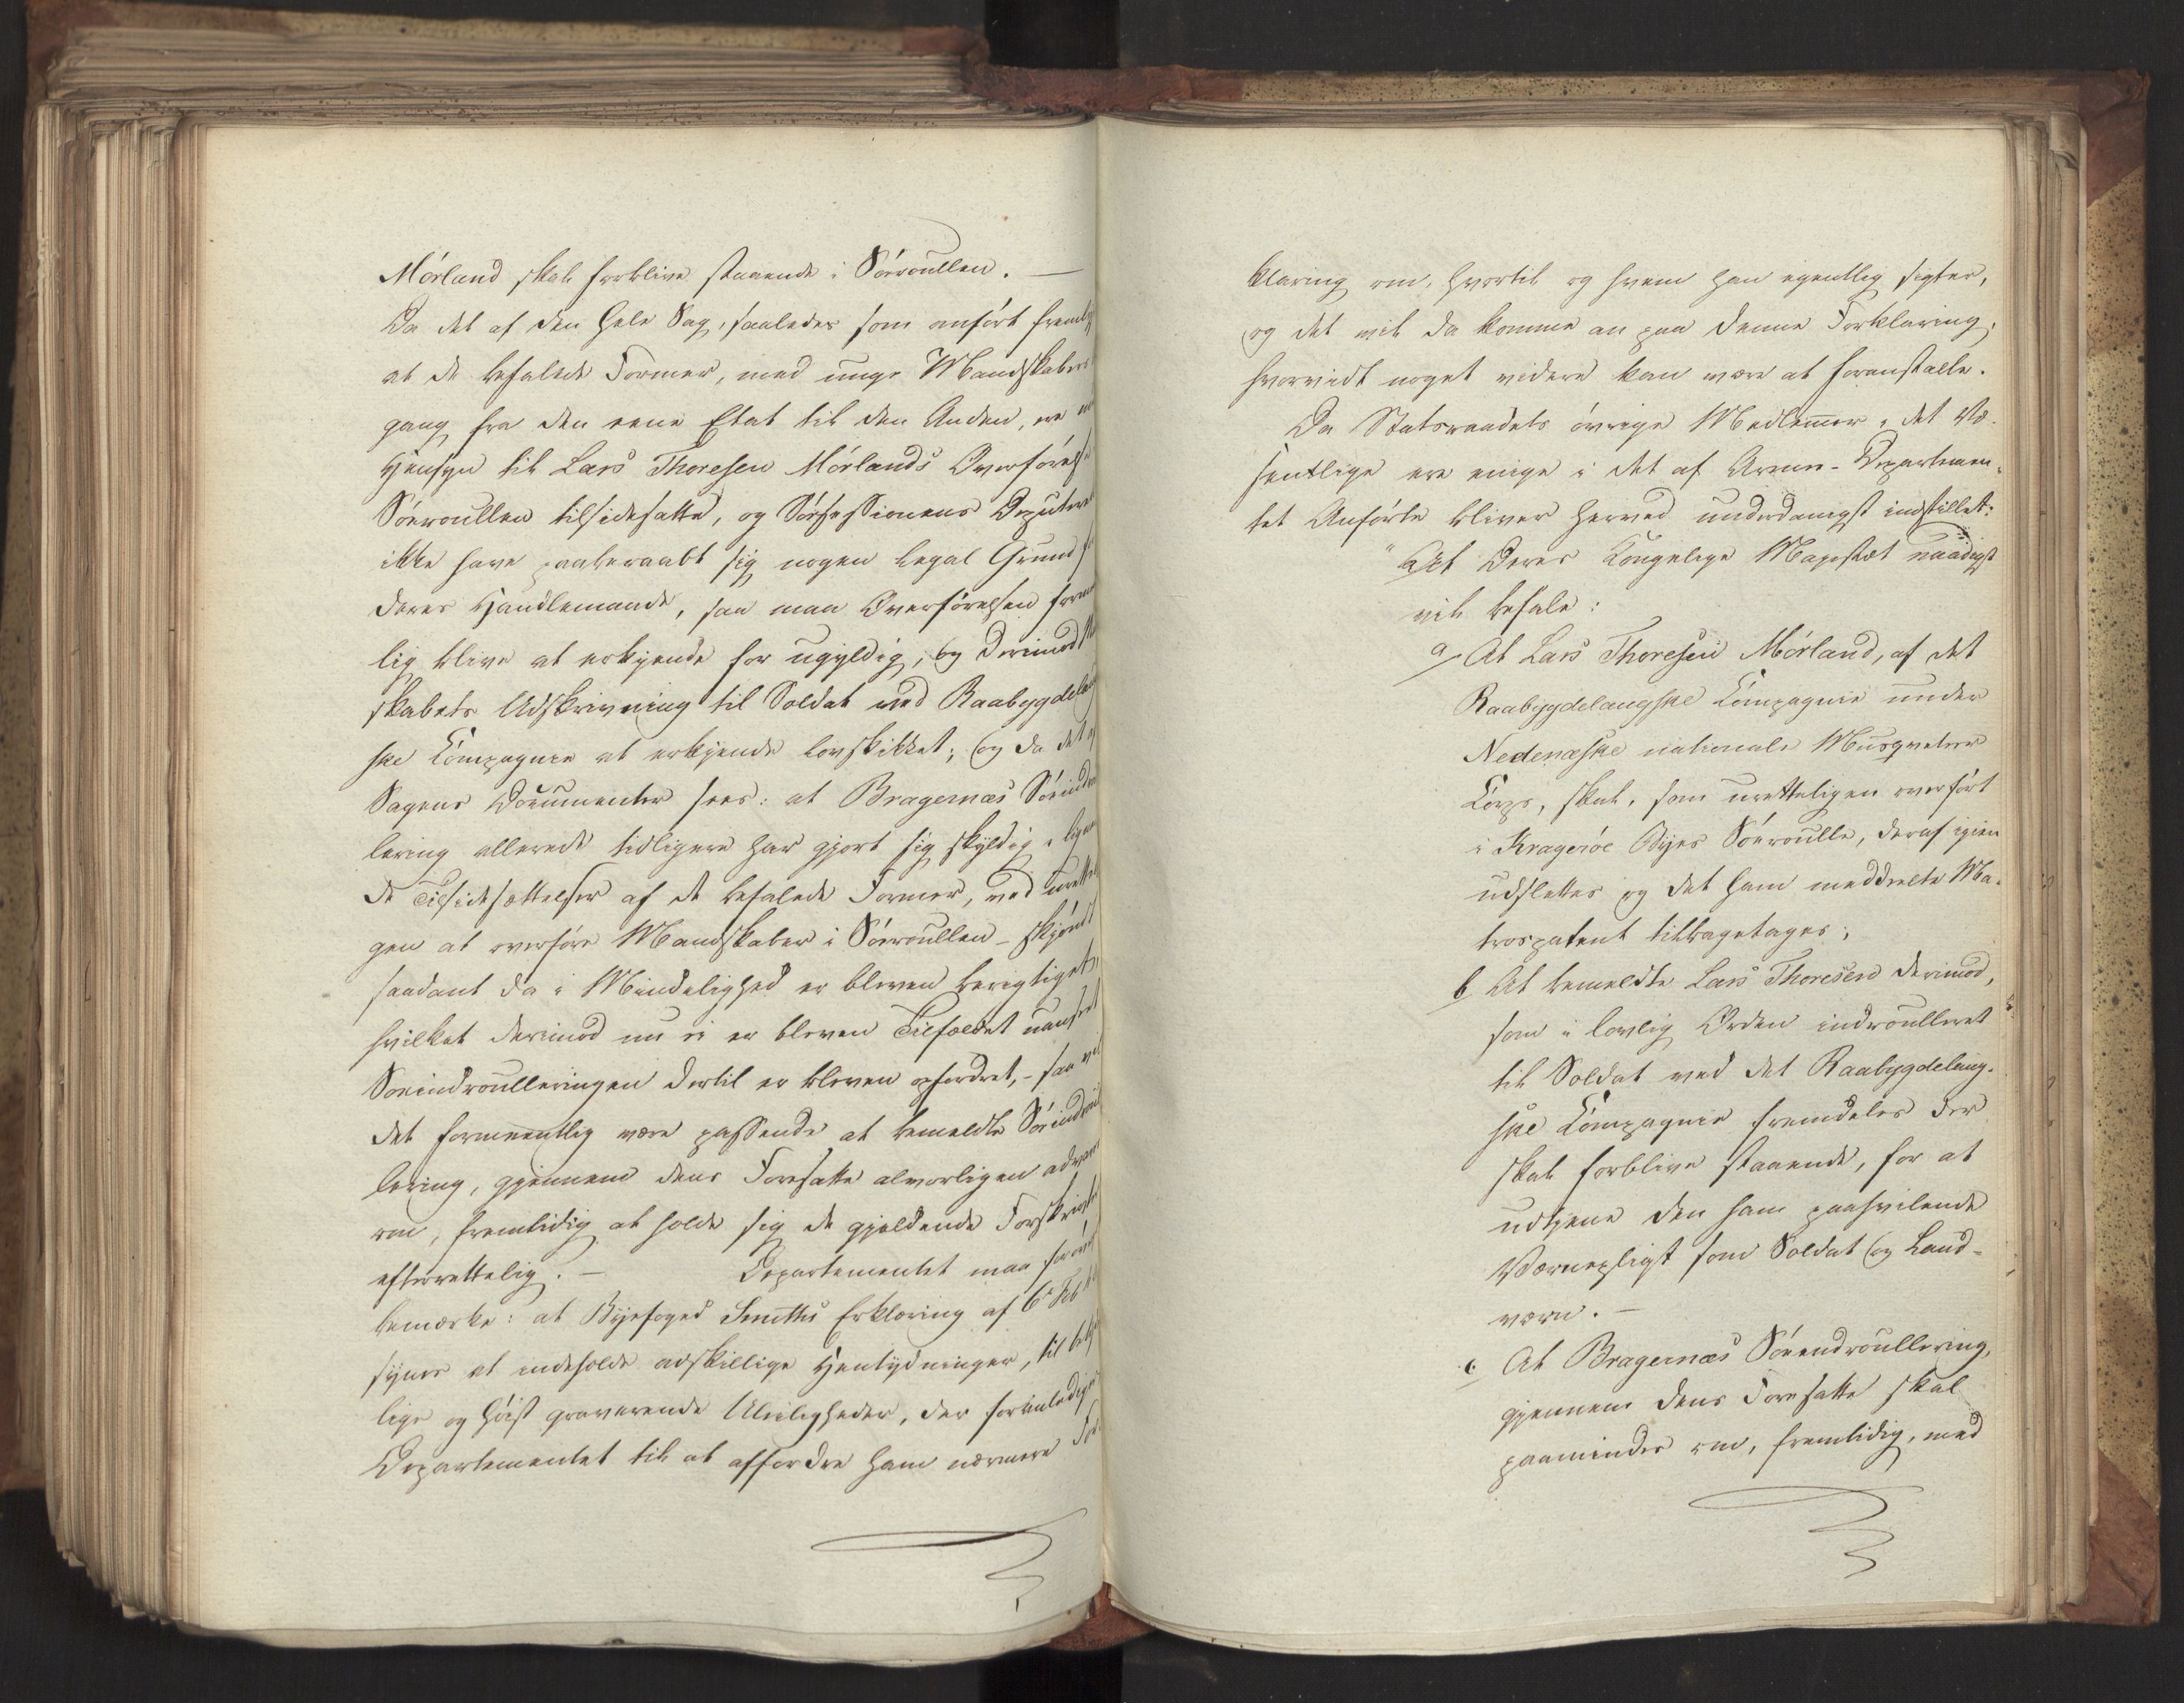 Mórland skal forblive staaende i Söeroullen. —
Da det af den hele Sag, saaledes som anført fremly
at de befalede Former, med unge Mandskabers
gang fra den eene Etat til den Anden, ere
Hensyn til Lars Thoresen Mórlands Overförelse
Söeroullen tilsidesatte, og Söesessionens Deputere
ikke have paaberaabt sig nogen legal Grund
deres Handlemaade, saa maa Overförelsen formeent
lig blive at erkjende for ugyldig, og derimod
skabets Udskrivning til Soldat ved Raabygdelaug
ske Compagnie at erkjende lovskikket; og da det af
Sagens Documenter sees: at Bragernæs Söeindrou
lering allerede tidligere har gjort sig skyldig i lignen
de Tilsidesættelser af de befalede Former, ved urettelig
gen at overföre Mandskaber i Söeroullen – skjöndt
saadant da i Mindelighed er bleven berigtiget,
hvilket derimod nu ei er bleven Tilfældet uanseet
Söeindroulleringen dertil er bleven opfordret, – saa vil
det formeentlig være passende at bemeldte Söeindroul
lering, gjennem dens Foresatte alvorligen advares
om, fremtidig at holde sig de gjeldende Forskrifter
efterrettelig. — Departementet maa forövrigt
bemærke: at Byefoged Smiths Erklæring af 6te Feb
synes at indeholde adskillige Hentydninger, til
lige og höist graverende Uleiligheder, der foranledige
Departementet til at affordre ham nærmere For
klaring om, hvortil og hvem han egentlig sigter,
og det vil da komme an paa denne Forklaring,
hvorvidt noget videre kan være at foranstalte.
Da Statsraadets övrige Medlemer i det Væ-
sentlige ere enige i det af Armee-Departemen-
tet Anförte bliver herved underdanigst indstillet:
"At Deres Kongelige Majestæt naadigst
vil befale:
a/ At Lars Thoresen Mórland, af det
Raabygdelaugske Compagnie under
Nedenæske nationale Musqueteer
Corps, skal, som uretteligen overfört
i Krageröe Byes Söeroulle, deraf igien
udslettes og det ham meddeelte Ma-
trospatent tilbagetages;
b/ At bemeldte Lars Thoresen derimod,
som i lovlig Orden indroulleret
til Soldat ved det Raabygdelaug-
ske Compagnie fremdeles der
skal forblive staaende, for at
udtjene den ham paahvilende
Værnepligt som Soldat og Land-
værn. —
c/ At Bragernæs Söeendroullering,
gjennem dens Foresatte skal
paamindes om, fremtidig, med